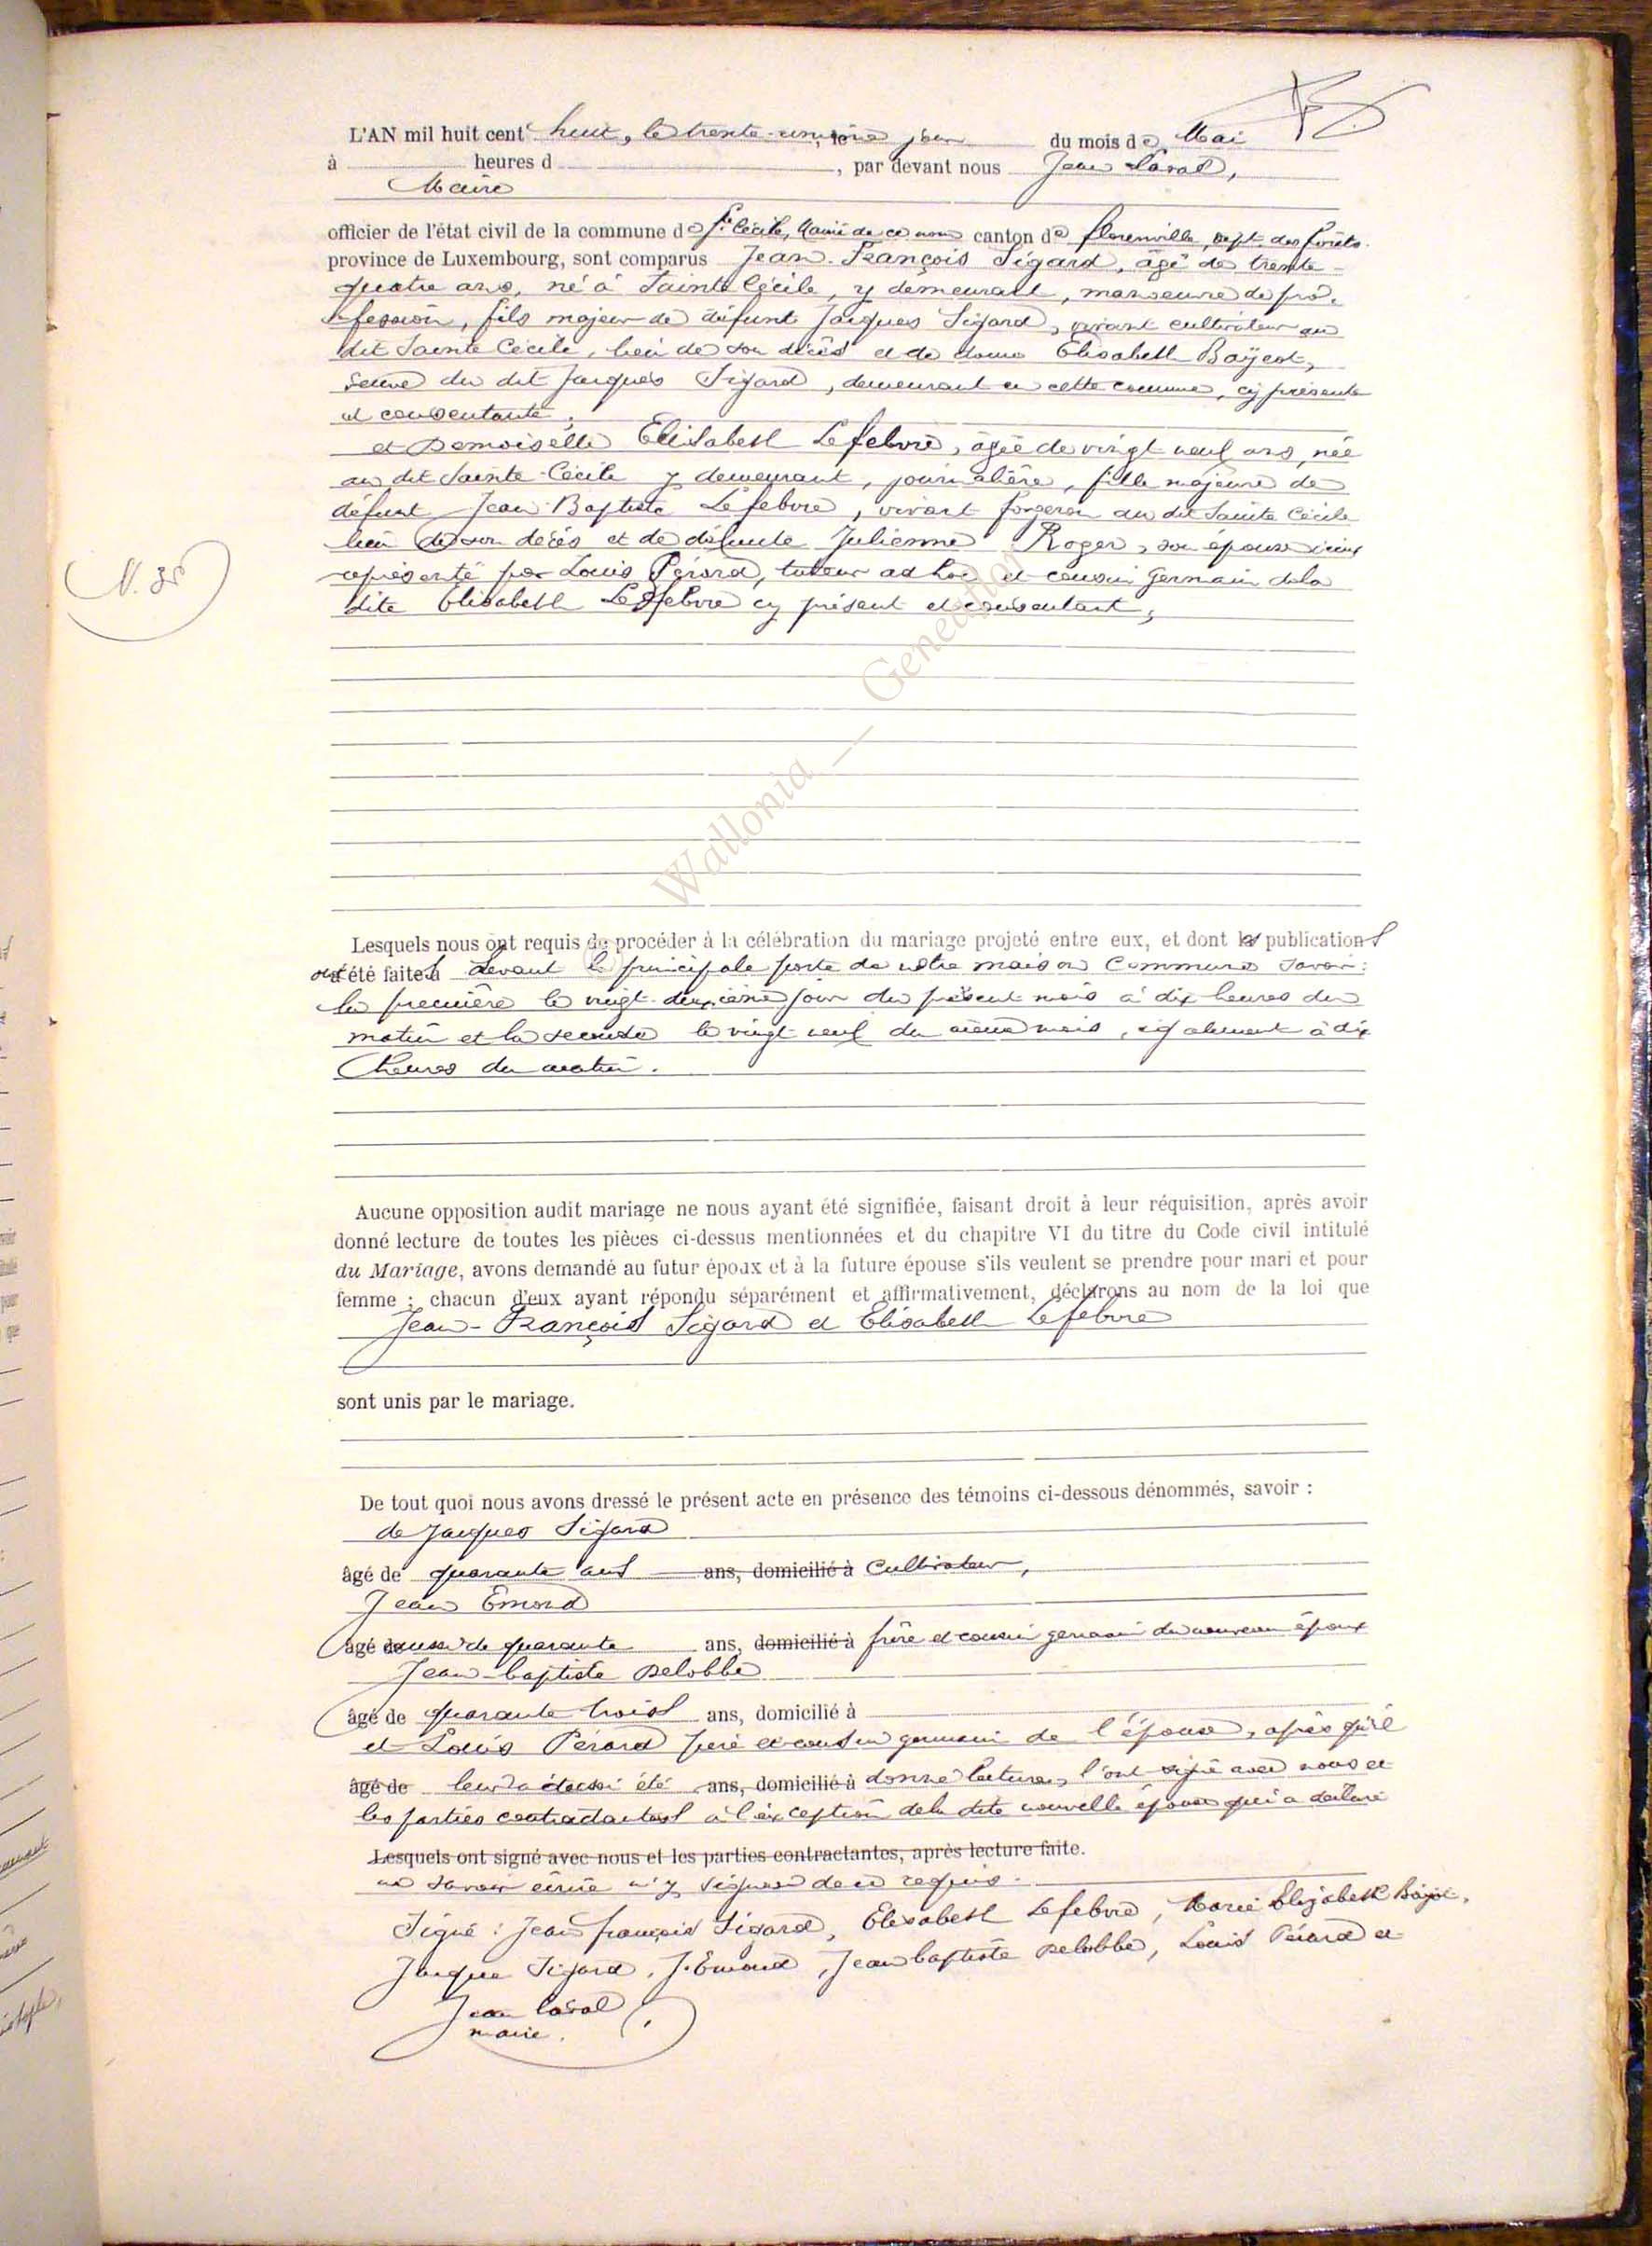 L'AN mil huit cent huit, le trente-unième jour du mois de Mai
à heures d , par devant nous Jean Laval,
Maire
officier de l'état civil de la commune de Ste Cécile, Mairie de ce nom canton de florenville, dept. des forêts.
province de Luxembourg, sont comparus Jean-François Sigard, âgé de trente-
quatre ans, né à Sainte Cécile, y demeurant, manoeuvre de pro-
fession, fils majeur de défunt Jacques Sigard, vivant cultivateur au
dit Sainte Cécile, lieu de son décès et de dame Elisabeth Bayeot,
veuve du dit Jacques Sigard, demeurant en cette commune, cy présente
et consentante;
et Demoiselle Elisabeth Lefebvre, âgée de vingt neuf ans, née
au dit Sainte-Cécile y demeurant, journalière, fille majeure de
défunt Jean-Baptiste Lefebvre, vivant forgeron au dit Sainte Cécile
lieu de son décès et de défunte Julienne Roger, son épouse
représenté par Louis Pérard, tuteur ad hoc et cousin germain dela
dite Elisabeth Lefebvre cy présent et consentant;
N. 35
© Wallonia — Geneaflor
Lesquels nous ont requis de procéder à la célébration du mariage projeté entre eux, et dont les publications
ont été faites devant la principale porte de notre maison Commune savoir:
la première le vingt-deuxième jour du présent mois à dix heures du
matin et la seconde le vingt neuf du même mois, également à dix
heures du matin.
Aucune opposition audit mariage ne nous ayant été signifiée, faisant droit à leur réquisition, après avoir
donné lecture de toutes les pièces ci-dessus mentionnées et du chapitre VI du titre du Code civil intitulé
du Mariage, avons demandé au futur époux et à la future épouse s'ils veulent se prendre pour mari et pour
femme : chacun d'eux ayant répondu séparément et affirmativement, déclarons au nom de la loi que
Jean-François Sigard et Elisabeth Lefebvre
sont unis par le mariage.
De tout quoi nous avons dressé le présent acte en présence des témoins ci-dessous dénommés, savoir :
de Jacques Sigard
âgé de quarante ans ans, domicilié à Cultivateur,
Jean Emond
âgé aussi de quarante ans, domicilié à frère et cousin germain du nouveau époux
Jean-baptiste Delobbe
âgé de quarante trois ans, domicilié à
et Louis Pérard et cousin germain de l'épouse, après qu'il
âgé de leur a aussi été ans, domicilié à donné lecture, l'ont signé avec nous et
les parties contractantes à l'exception dela dite nouvelle épouse qui a déclaré
Lesquels ont signé avec nous et les parties contractantes, après lecture faite.
ne savoir écrire n'y signer de ce requis.
Signé : Jean françois Sigard, Elisabeth Lefebvre, Marie Elizabeth Bayot,
Jacque Sigard, J. Emond, Jean baptiste Delobbe, Louis Pérard et
Jean Laval
maire.